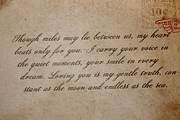 Though miles may lie between us, my heart
beats only for you. I carry your voice in
the quiet moments, your smile in every
dream. Loving you is my gentle truth, con
stant as the moon and endless as the sea.